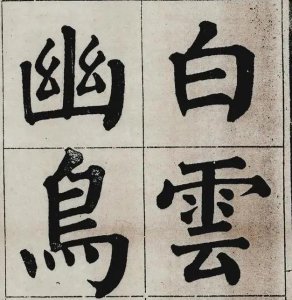 白雲
幽鳥